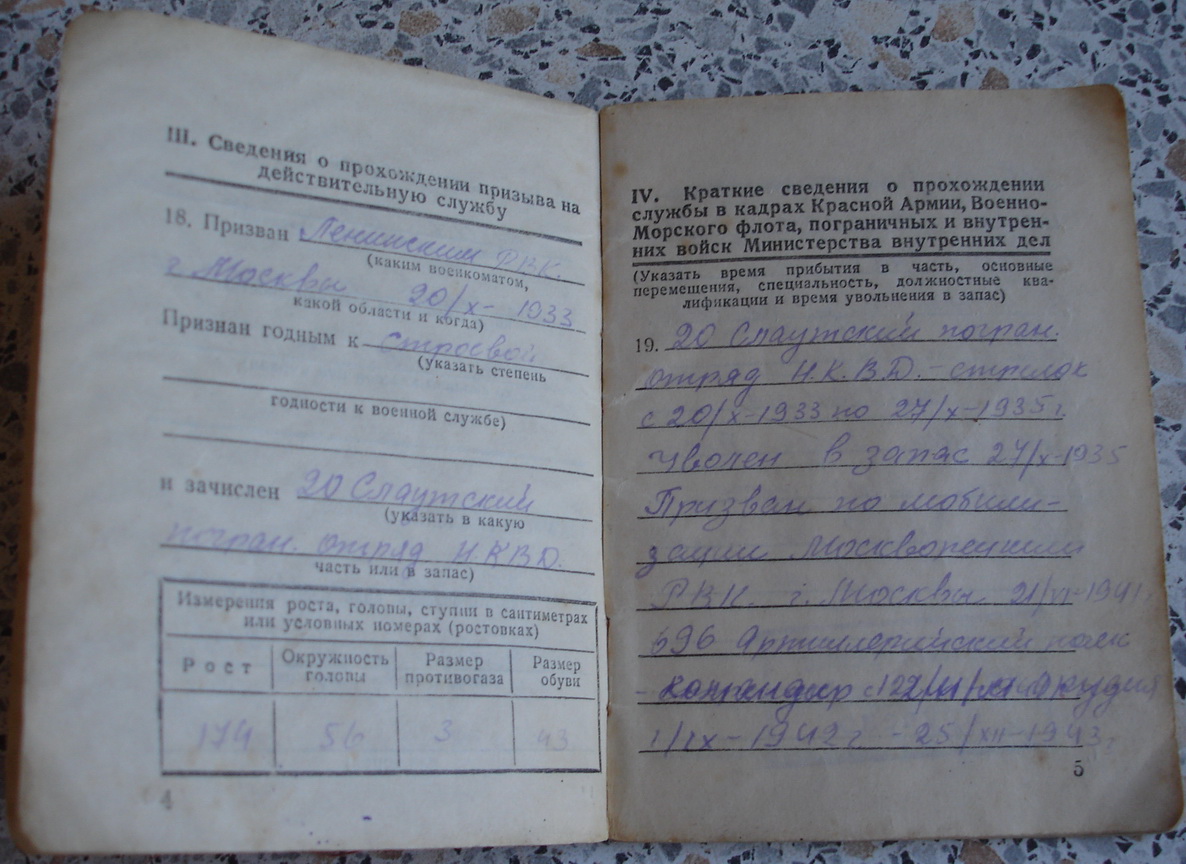 III. Сведения о прохождении призыва на
действительную службу
18. Призван Ленинским РВК.
(каким военкоматом,
г Москвы 20/X- 1933
какой области и когда)
Признан годным к строевой
(указать степень
годности к военной службе)
и зачислен 20 Слаутский
(указать в какую
погран. отряд Н.К.В.Д.
часть или в запас)
Измерения роста, головы, ступни в сантиметрах
или условных номерах (ростовках)
Рост Окружность головы Размер противогаза Размер обуви
174 56 3 43
4
IV. Краткие сведения о прохождении
службы в кадрах Красной Армии, Военно-
Морского флота, пограничных и внутрен-
них войск Министерства внутренних дел
(Указать время прибытия в часть, основные
перемещения, специальность, должностные ква-
лификации и время увольнения в запас)
19. 20 Слаутский погран.
отряд Н.К.В.Д. - стрелок
с 20/X-1933 по 27/X-1935 г.
Уволен в запас 27/X-1935
Призван по мобили-
зации Москворецким
РВК. г. Москвы 21/VI-1941.
696 Артиллерийский полк
- командир 122 м/м орудия
1/IX-1942 г - 25/XII-1943 г
5